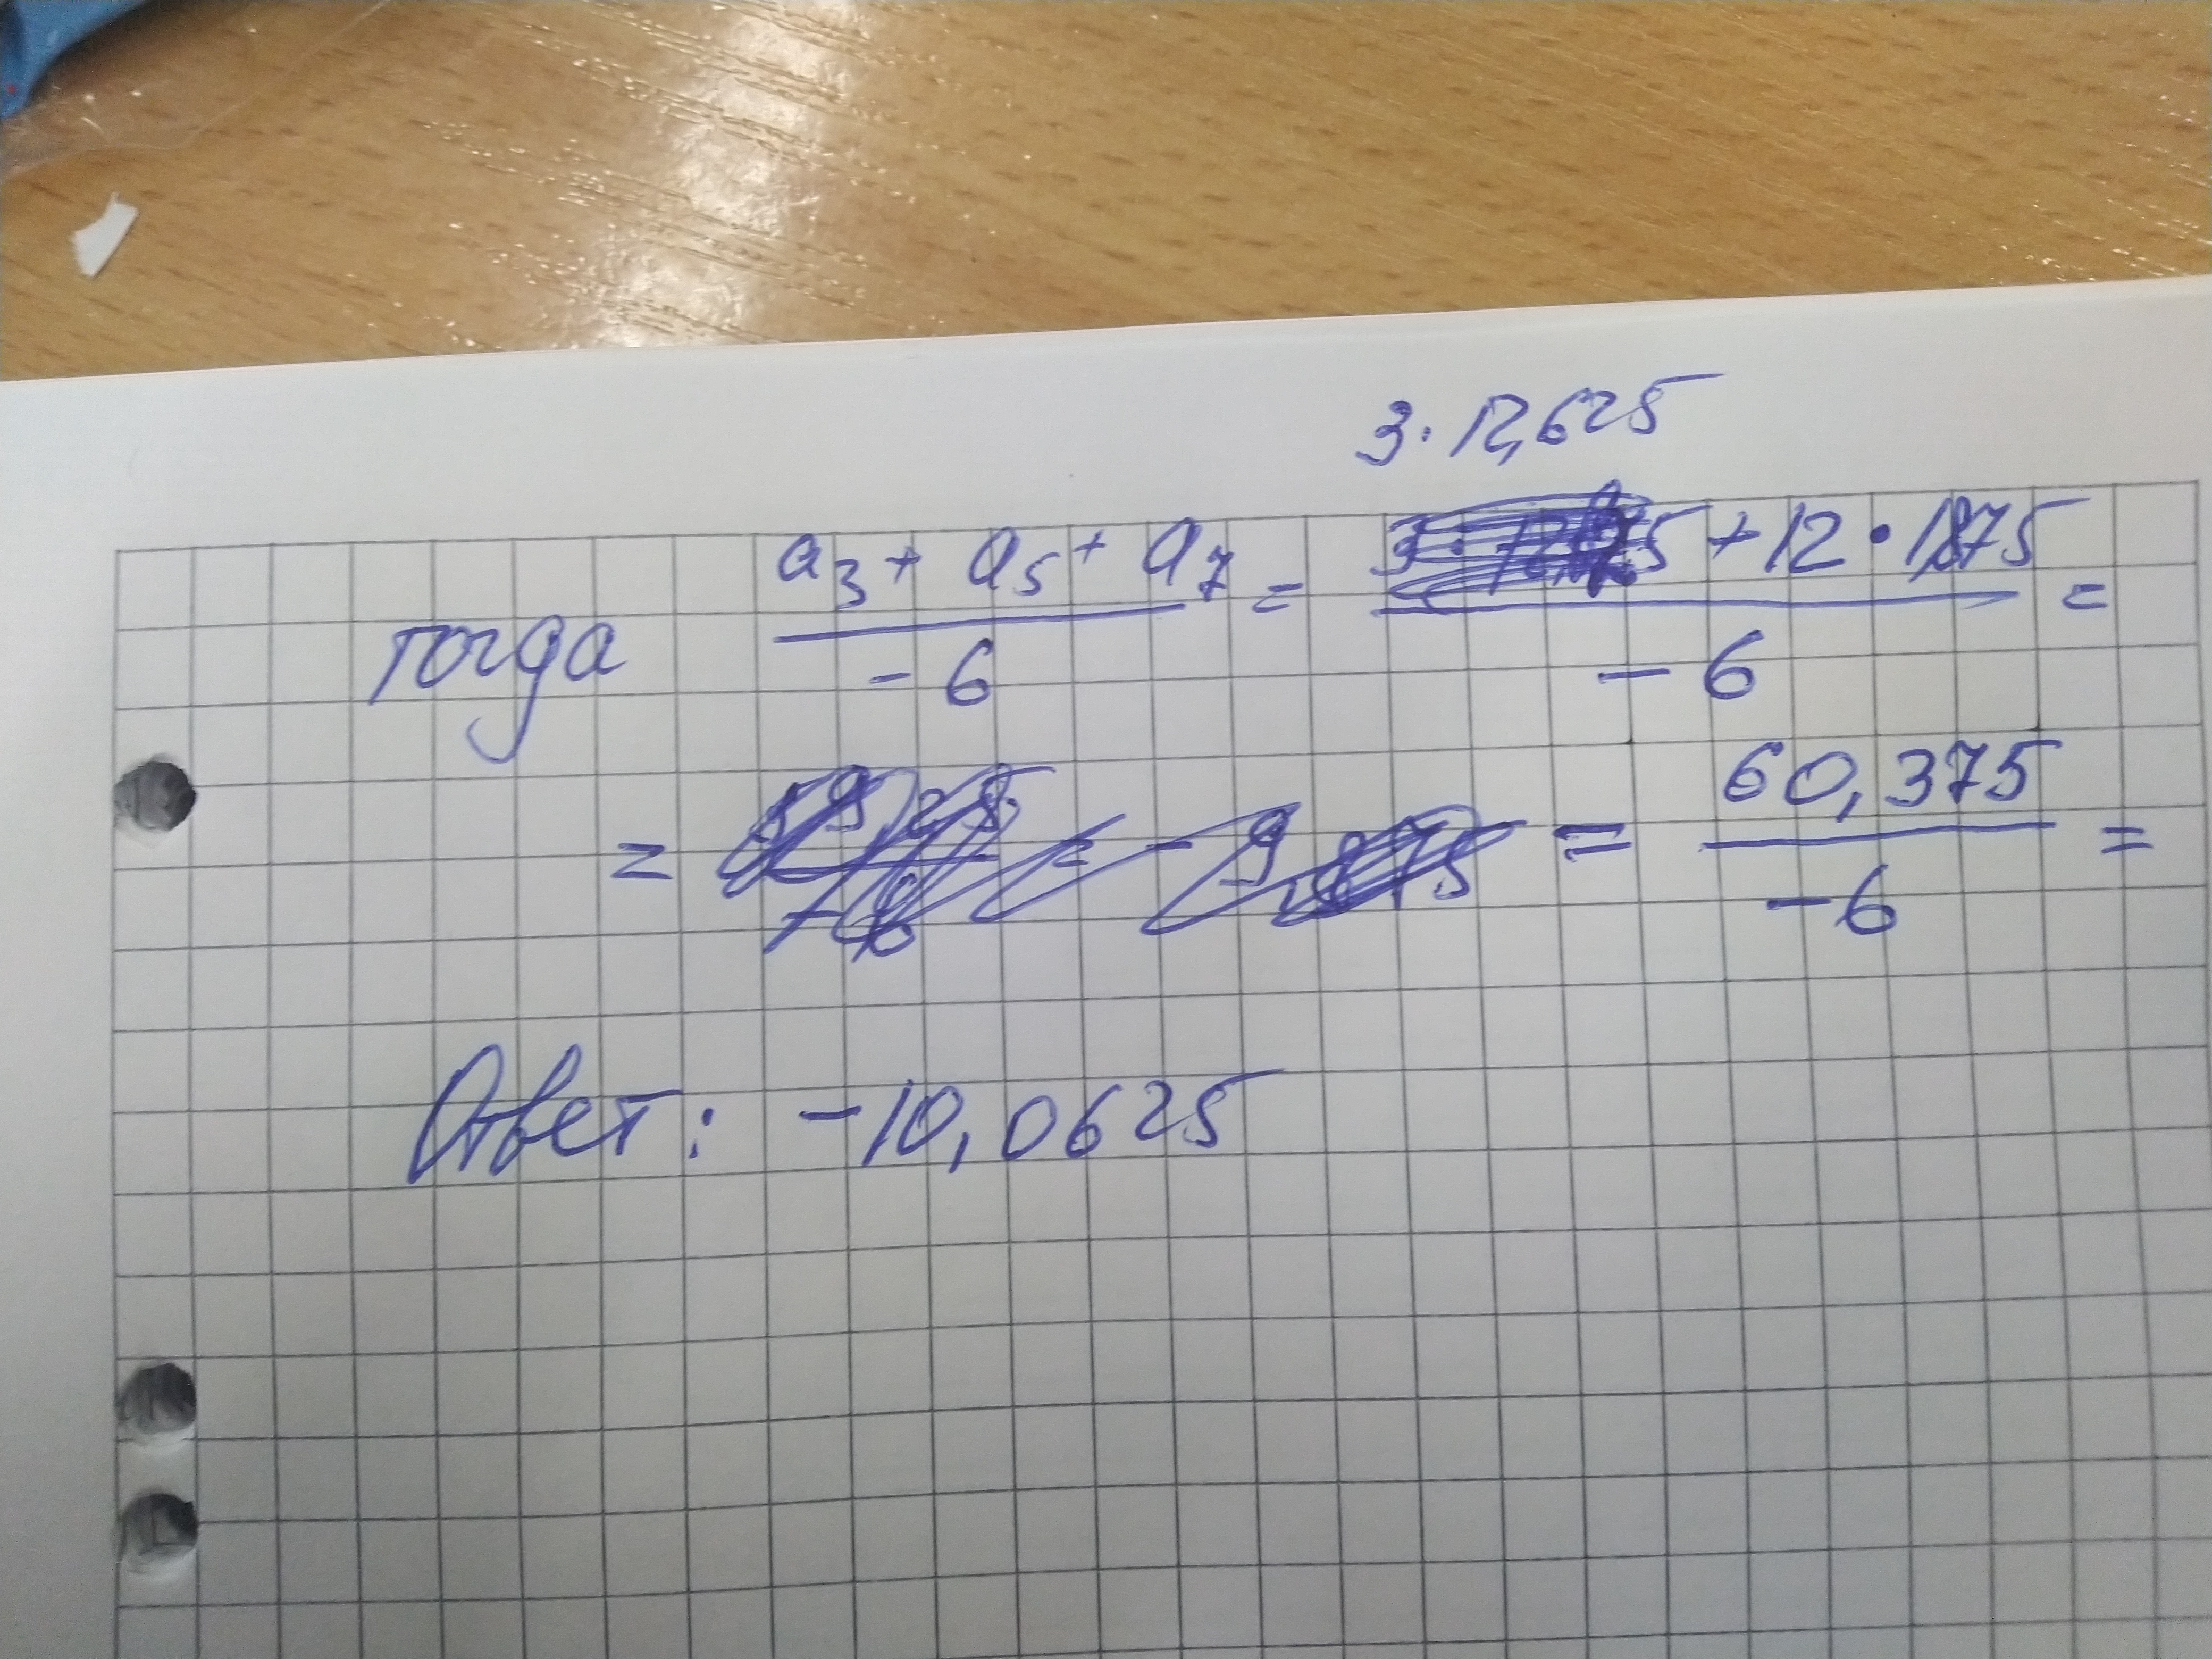 3·12,625
тогда a₃ + a₅ + a₇ / -6 = + 12 · 1,875 / -6 =
= = 60,375 / -6 =
Ответ: -10,0625